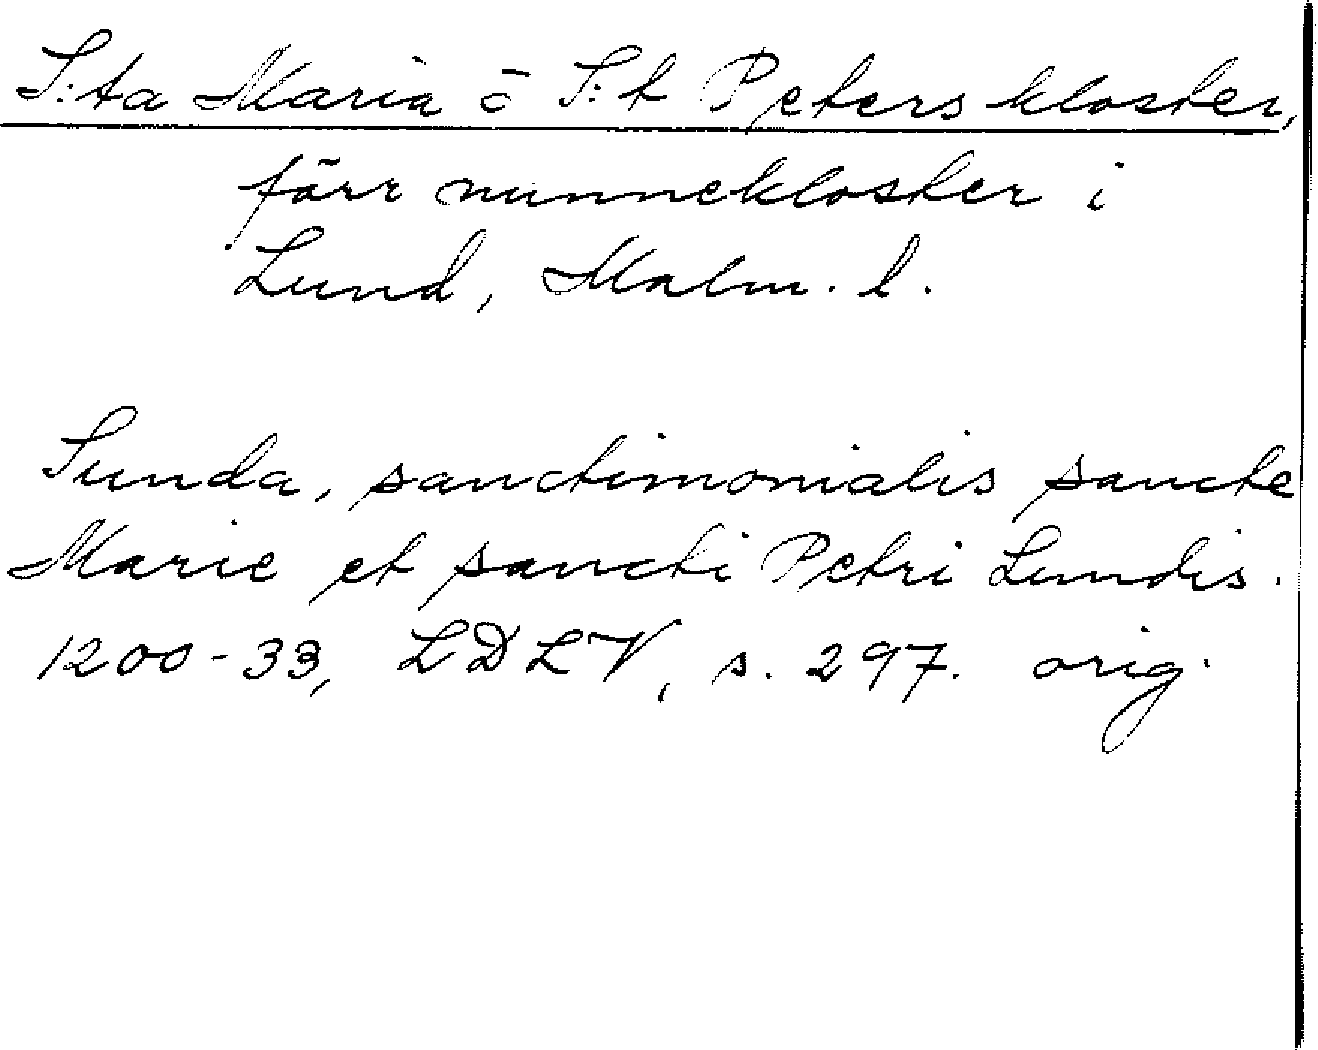 S:ta Maria o S:t Peters kloster,
förr nunnekloster i
Lund, Malm. l.
Sunda, sanctimonialis sancte
Marie et sancti Petri Lundis.
1200-33, LDLV, s. 297. orig.